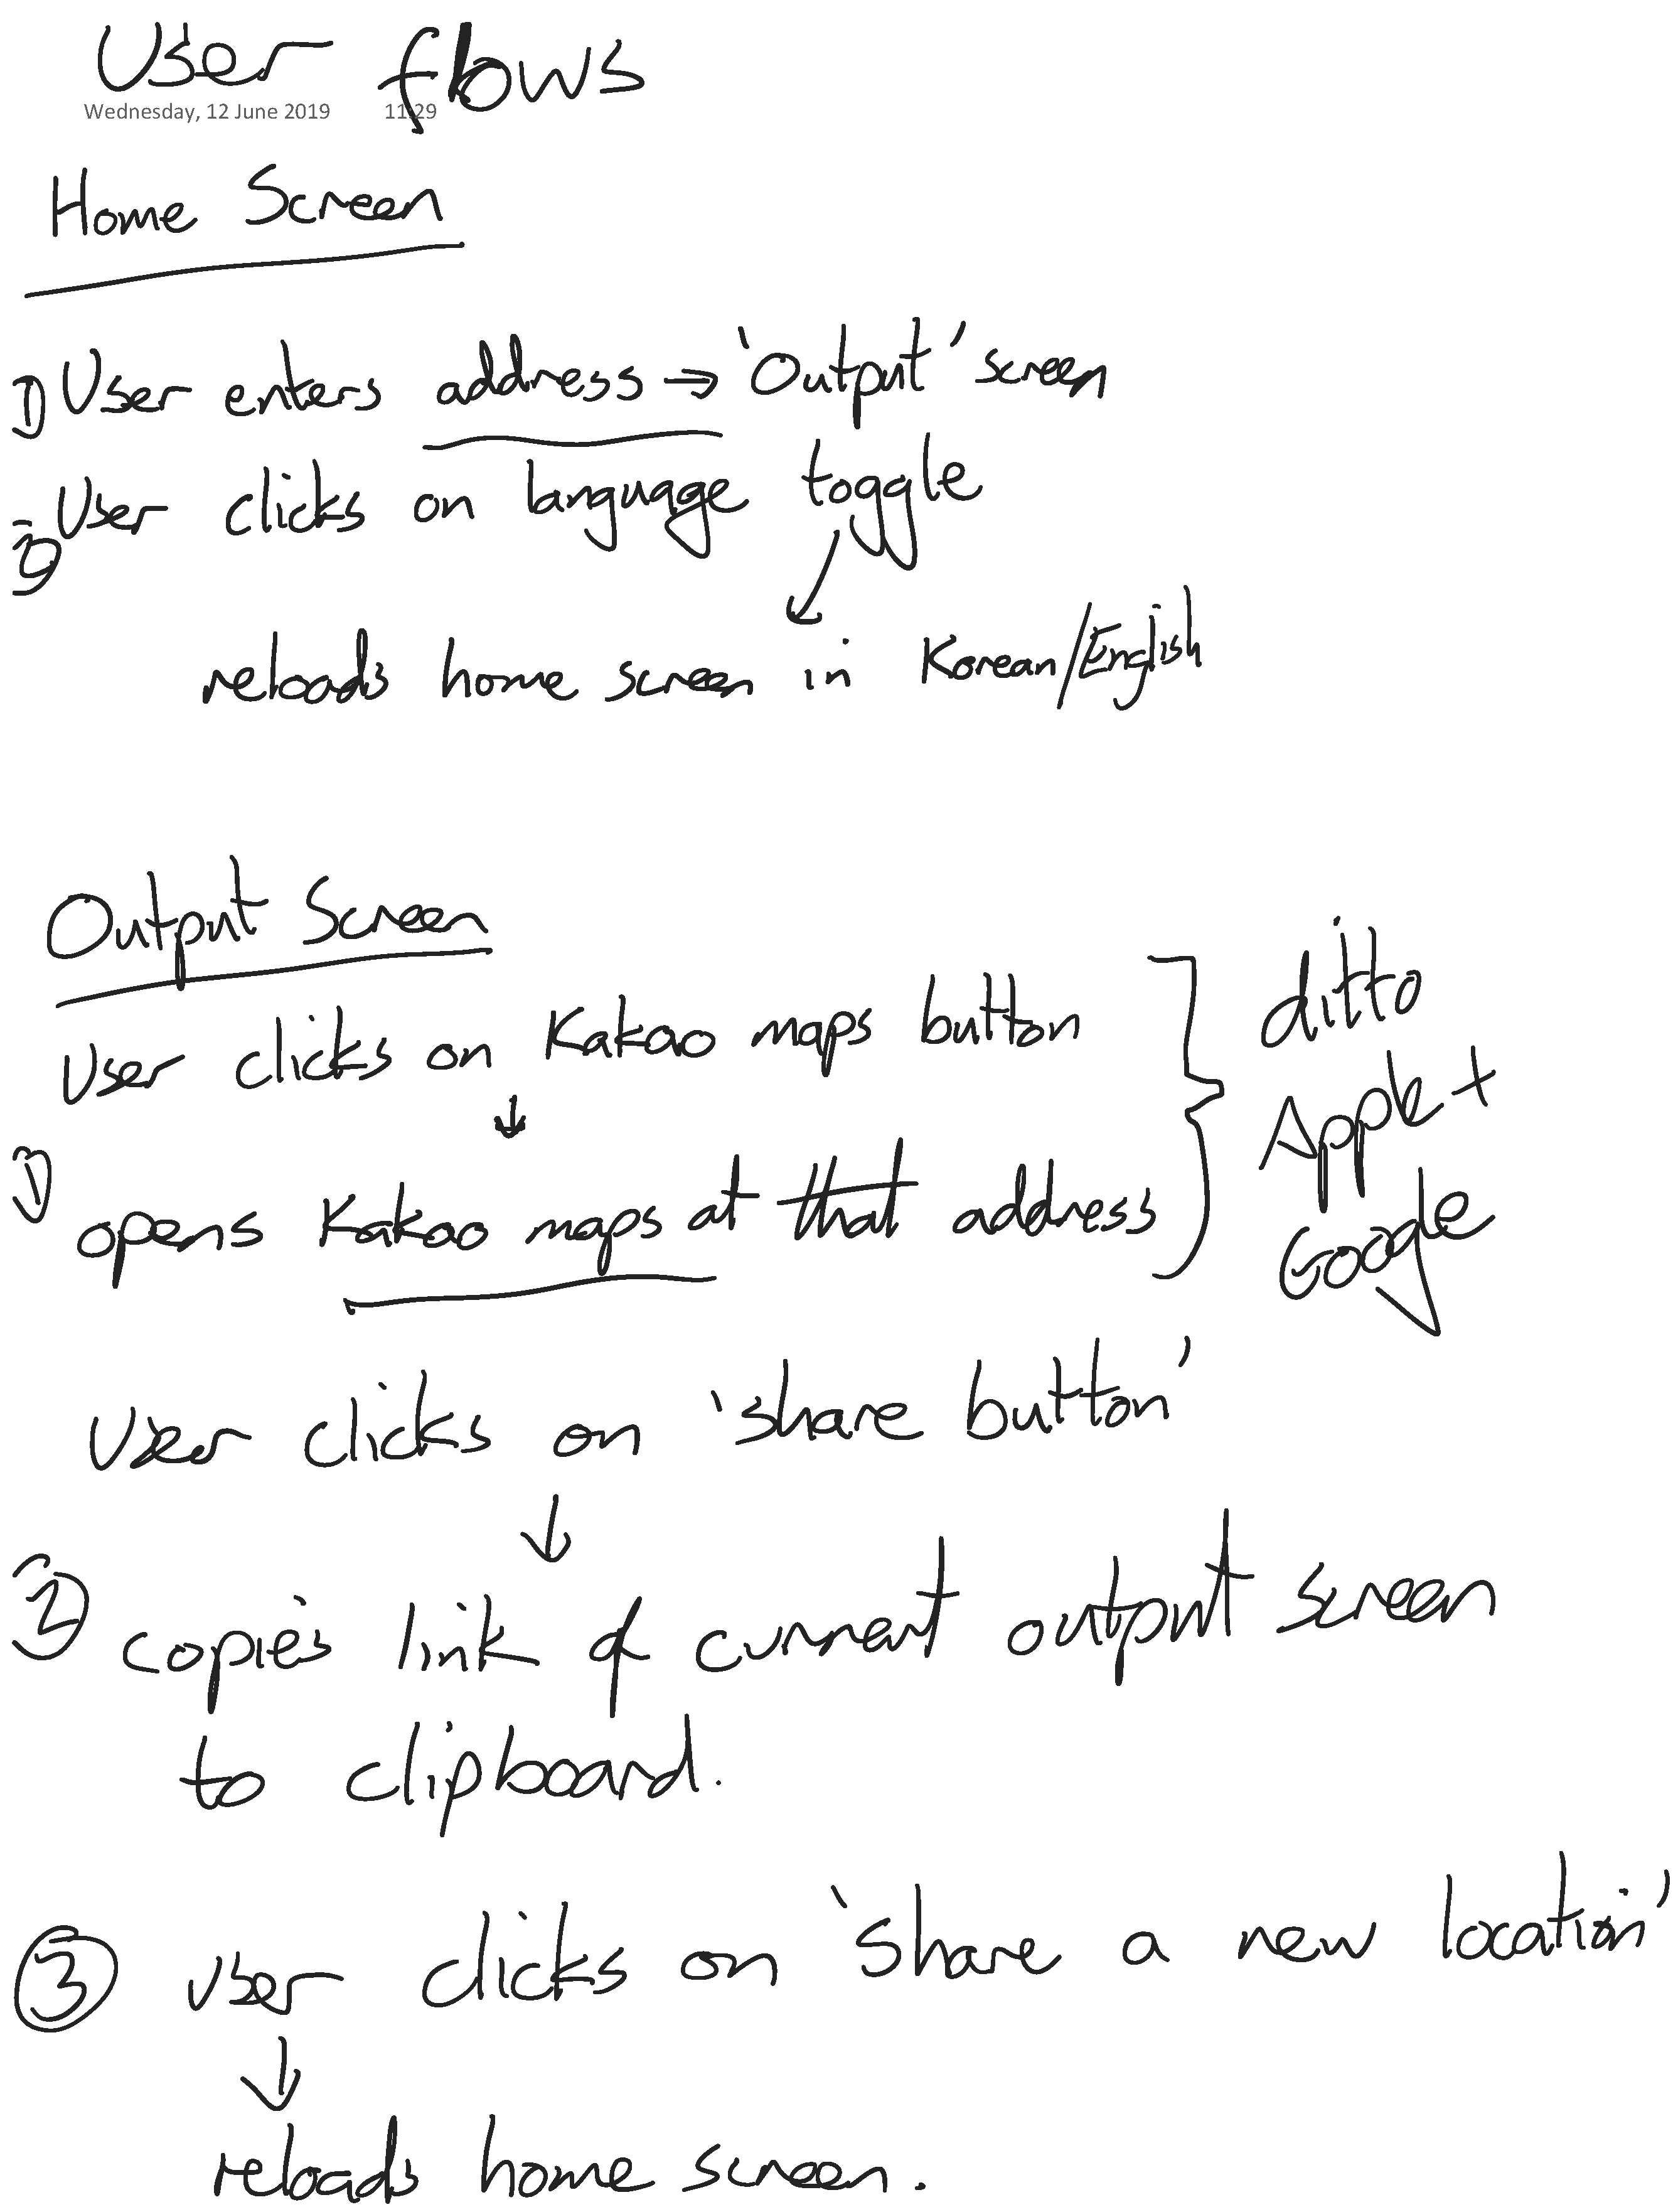 User flows
Wednesday, 12 June 2019 11:29
Home Screen
1) User enters address → 'Output' screen
2) User clicks on language toggle
↓
reloads home screen in Korean/English
Output Screen
User clicks on Kakao maps button
↓
1) opens Kakao maps at that address
} ditto
Apple +
Google
User clicks on 'share button'
↓
2) copies link of current output screen
to clipboard.
3 user clicks on 'share a new location'
↓
reloads home screen.